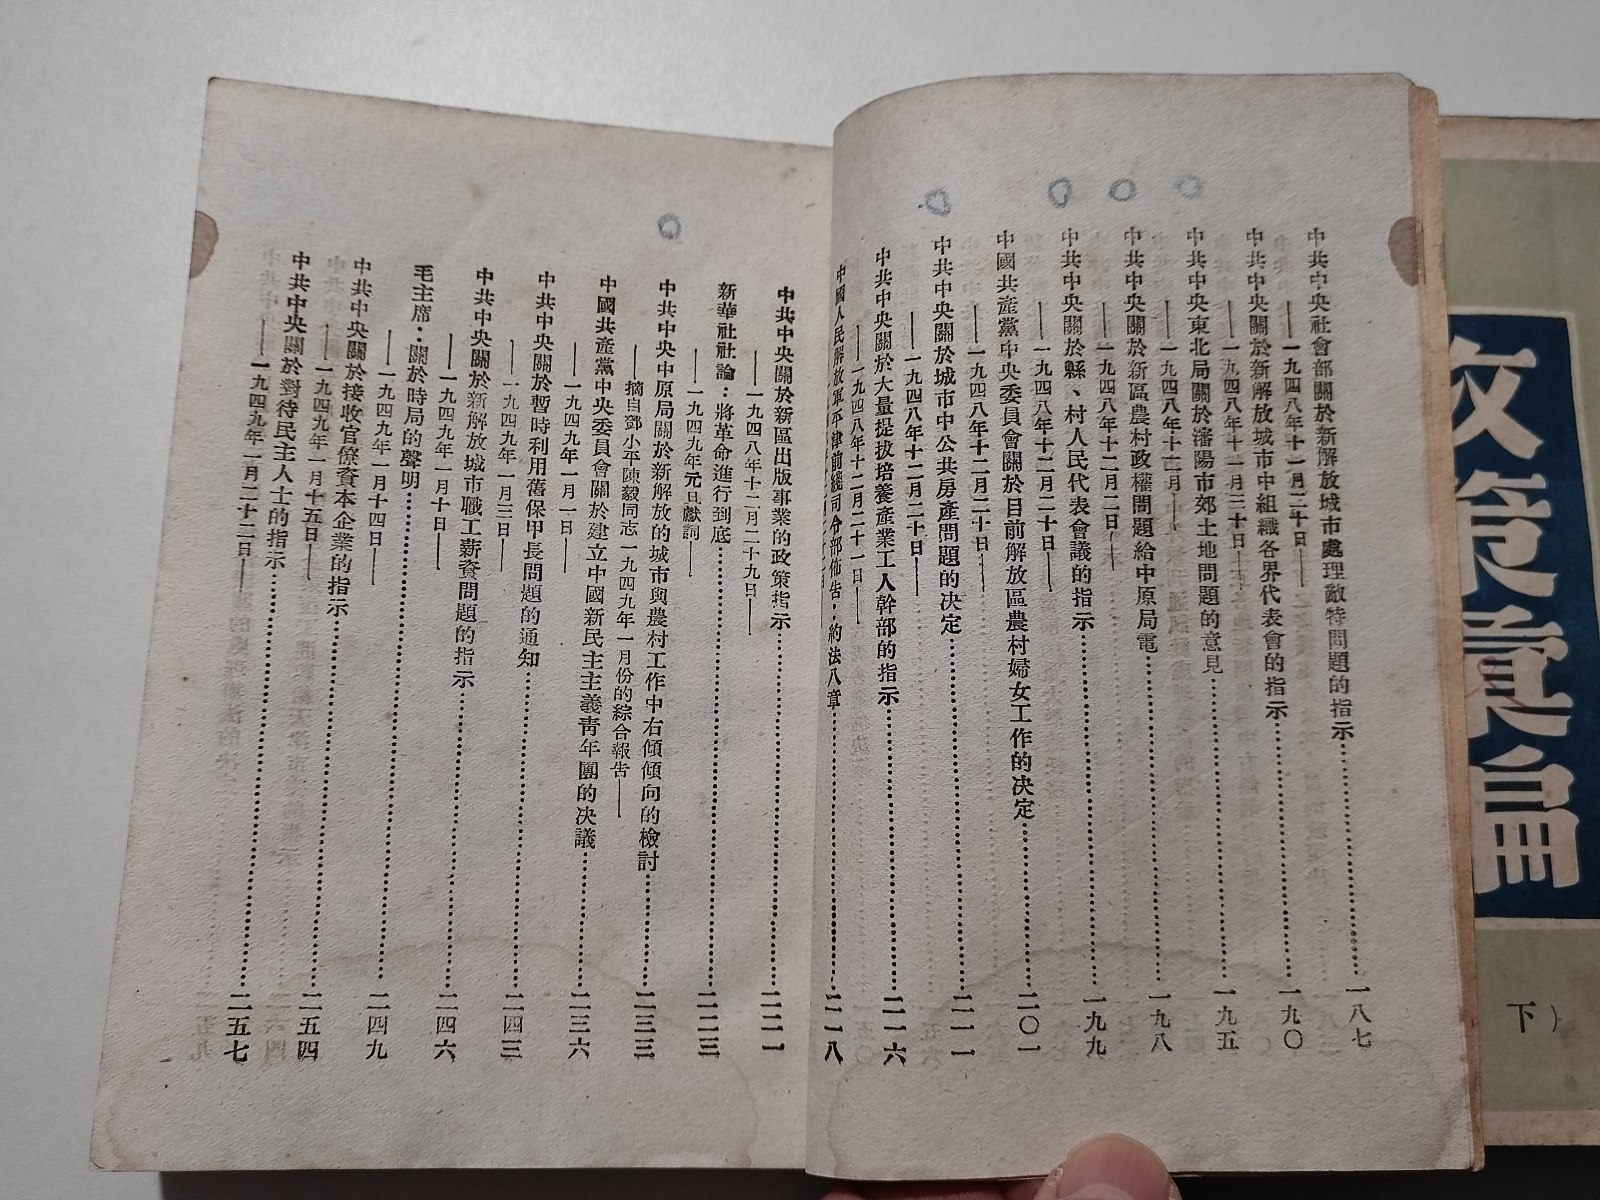 中共中央社會部關於新解放城市處理敵特問題的指示……一八七
——一九四八年十一月二十日——
中共中央關於新解放城市中組織各界代表會的指示……一九〇
——一九四八年十一月三十日——
中共中央東北局關於瀋陽市郊土地問題的意見……一九五
中共中央關於新區農村政權問題給中原局電……一九八
——一九四八年十二月二日——
中共中央關於縣、村人民代表會議的指示……一九九
——一九四八年十二月二十日——
中國共產黨中央委員會關於目前解放區農村婦女工作的決定……二〇一
——一九四八年十二月二十日——
中共中央關於城市中公共房產問題的決定……二一一
——一九四八年十二月二十日——
中共中央關於大量提拔培養產業工人幹部的指示……二一六
——一九四八年十二月二十一日——
中國人民解放軍平津前綫司令部佈告·約法八章……二一八
中共中央關於新區出版事業的政策指示……二二一
——一九四八年十二月二十九日——
新華社社論：將革命進行到底……二二三
——一九四九年元旦獻詞——
中共中央中原局關於新解放的城市與農村工作中右傾傾向的檢討……二三三
——摘自鄧小平陳毅同志一九四九年一月份的綜合報告——
中國共產黨中央委員會關於建立中國新民主主義青年團的決議……二三六
——一九四九年一月一日——
中共中央關於暫時利用舊保甲長問題的通知……二四三
——一九四九年一月三日——
中共中央關於新解放城市職工薪資問題的指示……二四六
——一九四九年一月十日——
毛主席：關於時局的聲明……二四九
——一九四九年一月十四日——
中共中央關於接收官僚資本企業的指示……二五四
——一九四九年一月十五日——
中共中央關於對待民主人士的指示……二五七
——一九四九年一月二十二日——
政策彙編
下）